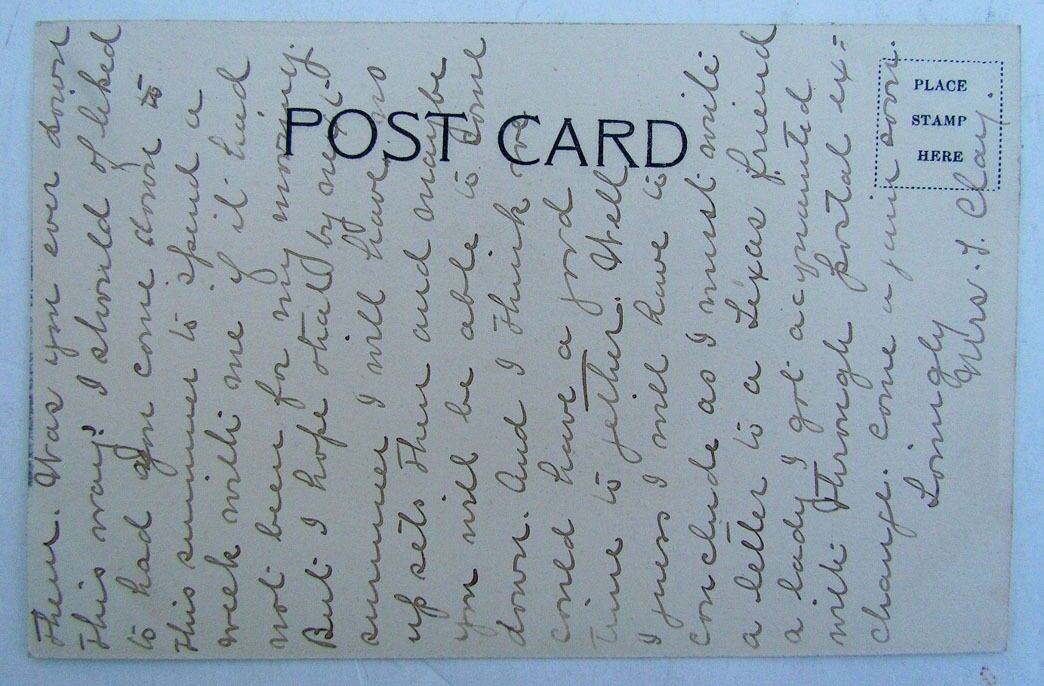 POST CARD
PLACE
STAMP
HERE
them. Was you ever down
this way? I should of liked
to had you come down to
this summer to spend a
week with me if it had
not been for my money.
But I hope that by next
summer I will have no
up sets then and maybe
you will be able to come
down. And I think we
could have a good
time to gether. Well
I guess I will have to
conclude as I must write
a letter to a Texas friend
a lady I got acquainted
with through postal ex=
change. come again soon.
Lovingly
Mrs. I. Clay.